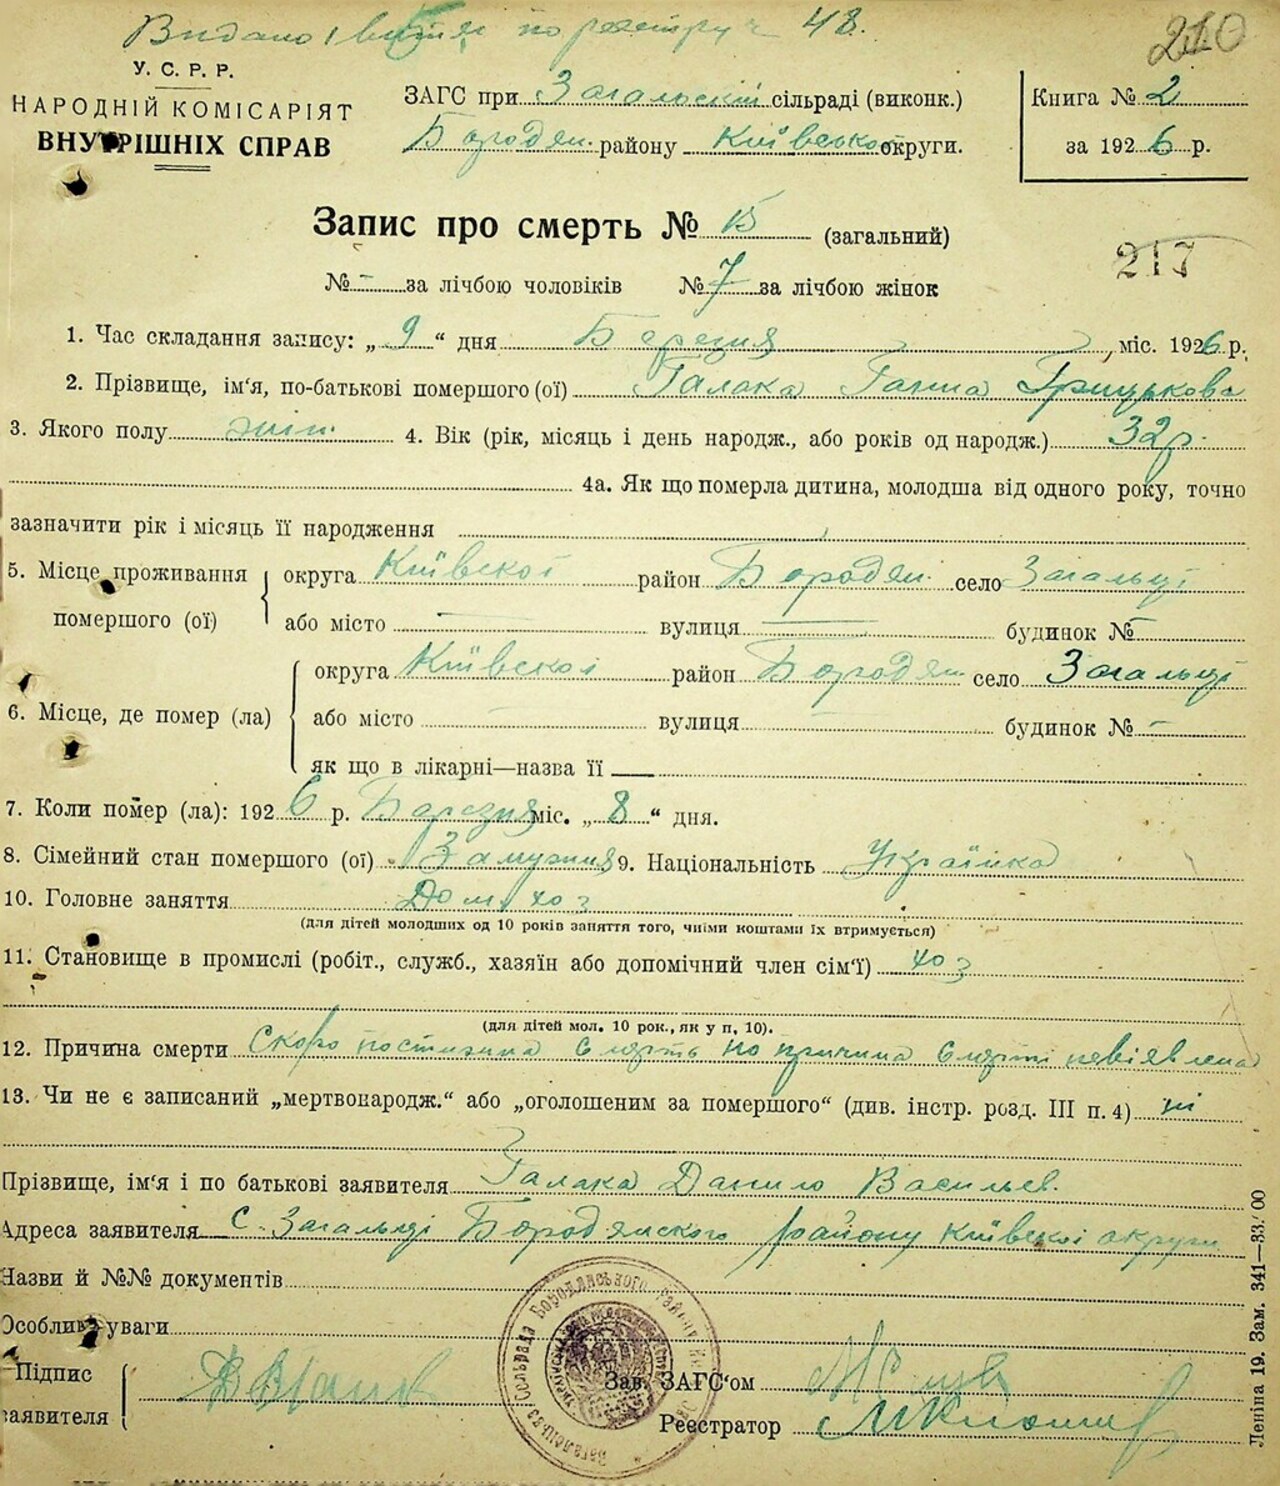 Видано по реєстру 48.
210
У. С. Р. Р.
НАРОДНІЙ КОМІСАРІЯТ
ВНУТРІШНІХ СПРАВ
ЗАГС при Загальській сільраді (виконк.)
Бородян. району Київської округи.
Книга № 2
за 1926 р.
Запис про смерть № 15 (загальний)
217
№ – за лічбою чоловіків № 7 за лічбою жінок
1. Час складання запису: „ 9 “ дня Березня, міс. 1926 р.
2. Прізвище, ім'я, по-батькові помершого (ої) Галака Ганна Грицькова
3. Якого полу жін. 4. Вік (рік, місяць і день народж., або років од народж.) 32 р.
4а. Як що померла дитина, молодша від одного року, точно
зазначити рік і місяць її народження
5. Місце проживання помершого (ої) округа Київскої район Бородян. село Загальці
або місто — вулиця — будинок № –
6. Місце, де помер (ла) округа Київскої район Бородян. село Загальці
або місто — вулиця — будинок № –
як що в лікарні—назва її —
7. Коли помер (ла): 1926 р. Березня міс. „ 8 “ дня.
8. Сімейний стан помершого (ої) Замужня 9. Національність Українка
10. Головне заняття Дом. хоз
(для дітей молодших од 10 років заняття того, чиїми коштами їх втримується)
11. Становище в промислі (робіт., служб., хазяїн або допомічний член сім'ї) хоз
(для дітей мол. 10 рок., як у п. 10).
12. Причина смерти Скоро постижна смерть но причина смерті невіявлена
13. Чи не є записаний „мертвонародж.“ або „оголошеним за помершого“ (див. інстр. розд. III п. 4) ні
Прізвище, ім'я і по батькові заявителя Галака Данило Васильев.
Адреса заявителя с. Загальці Бородянского району Київскої округи
Назви й №№ документів
Особливі уваги
Підпис заявителя
Зав. ЗАГС'ом
Реєстратор
Леніна 19. Зам. 341—33/00